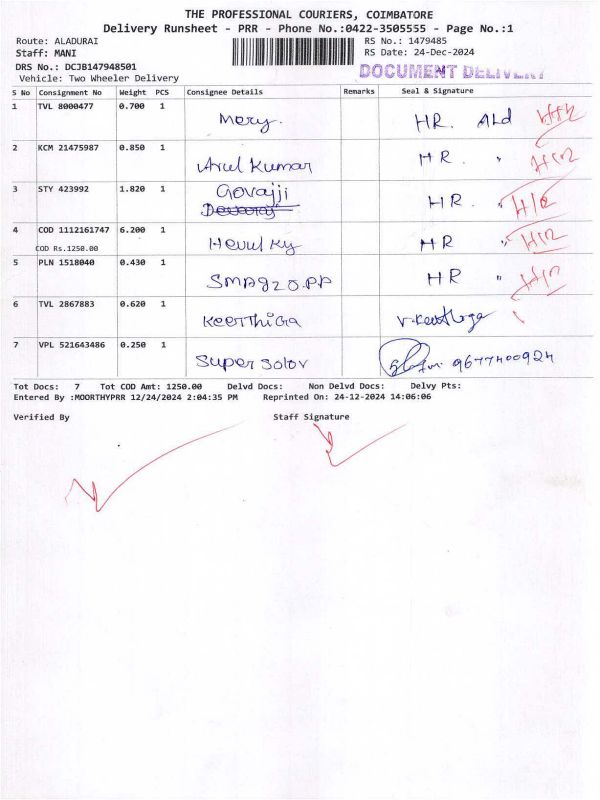 THE PROFESSIONAL COURIERS, COIMBATORE
Delivery Runsheet - PRR - Phone No.:0422-3505555 - Page No.:1
Route: ALADURAI RS No.: 1479485
Staff: MANI RS Date: 24-Dec-2024
DRS No.: DCJB147948501
DOCUMENT DELIVERY
Vehicle: Two Wheeler Delivery
S No Consignment No Weight PCS Consignee Details Remarks Seal & Signature
1 TVL 8000477 0.700 1 Mery. HR. Ald
2 KCM 21475987 0.850 1 Arul Kumar HR. "
3 STY 423992 1.820 1 Govajji HR. "
4 COD 1112161747 6.200 1 HR "
COD Rs.1250.00
5 PLN 1518040 0.430 1 HR "
6 TVL 2867883 0.620 1 Keerthiga
7 VPL 521643486 0.250 1 Super Solov 9677400924
Tot Docs: 7 Tot COD Amt: 1250.00 Delvd Docs: Non Delvd Docs: Delvy Pts:
Entered By :MOORTHYPRR 12/24/2024 2:04:35 PM Reprinted On: 24-12-2024 14:06:06
Verified By Staff Signature